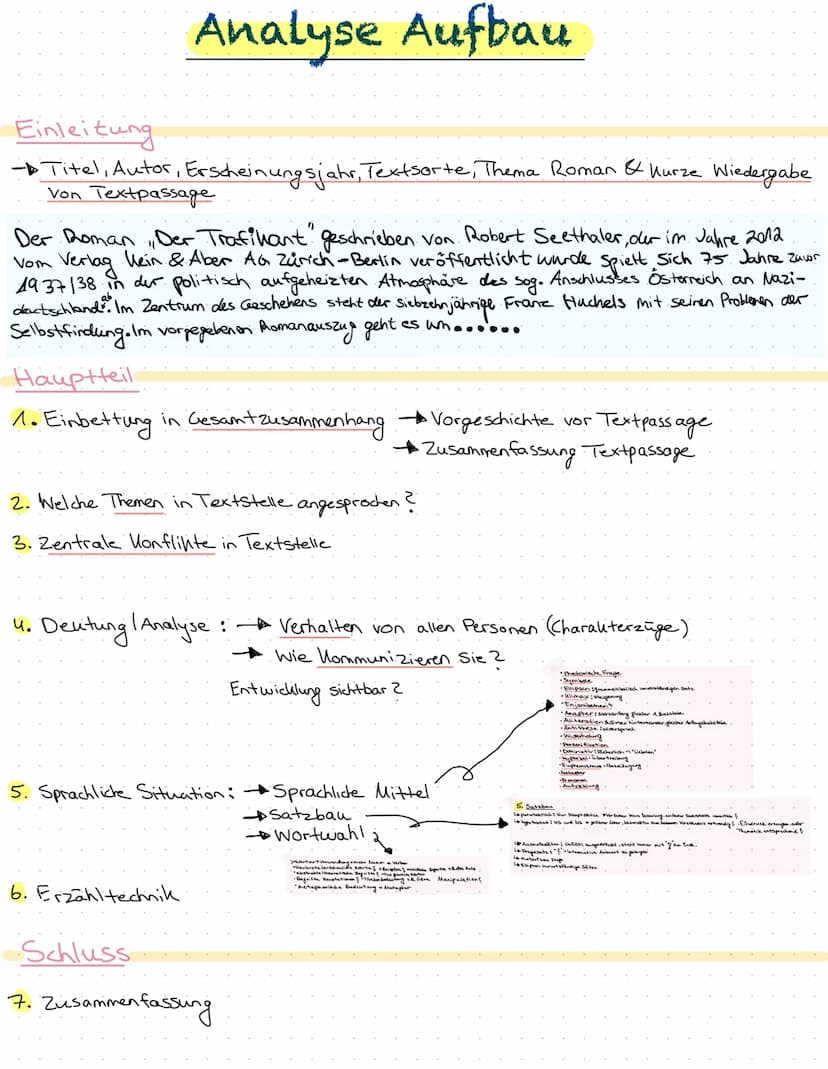 Analyse Aufbau
Einleitung
→ Titel, Autor, Erscheinungsjahr, Textsorte, Thema Roman & kurze Wiedergabe
von Textpassage
Der Roman „Der Trafikant" geschrieben von Robert Seethaler, der im Jahre 2012
vom Verlag Kein & Aber AG Zürich-Berlin veröffentlicht wurde spielt sich 75 Jahre zuvor
1937/38 in der politisch aufgeheizten Atmosphäre des sog. Anschlusses Österreich an Nazi-
deutschland ab. Im Zentrum des Geschehens steht der Siebzehnjährige Franz Huchels mit seinen Problemen der
Selbstfindung. Im vorgegebenen Romanauszug geht es um.......
Hauptteil
1. Einbettung in Gesamtzusammenhang → Vorgeschichte vor Textpassage
→ Zusammenfassung Textpassage
2. Welche Themen in Textstelle angesprochen?
3. Zentrale Konflikte in Textstelle
4. Deutung/Analyse : → Verhalten von allen Personen (Charakterzüge)
→ Wie kommunizieren Sie?
Entwicklung sichtbar?
• Rhetorische Frage
• Symbole
• Klimax : Steigerung
• Enjambement
• Wiederholung
• Personifikation
• Metapher
• Aufzählung
5. Sprachliche Situation: → Sprachliche Mittel
→ Satzbau
→ Wortwahl
5. Satzbau
6. Erzähltechnik
Schluss
7. Zusammenfassung